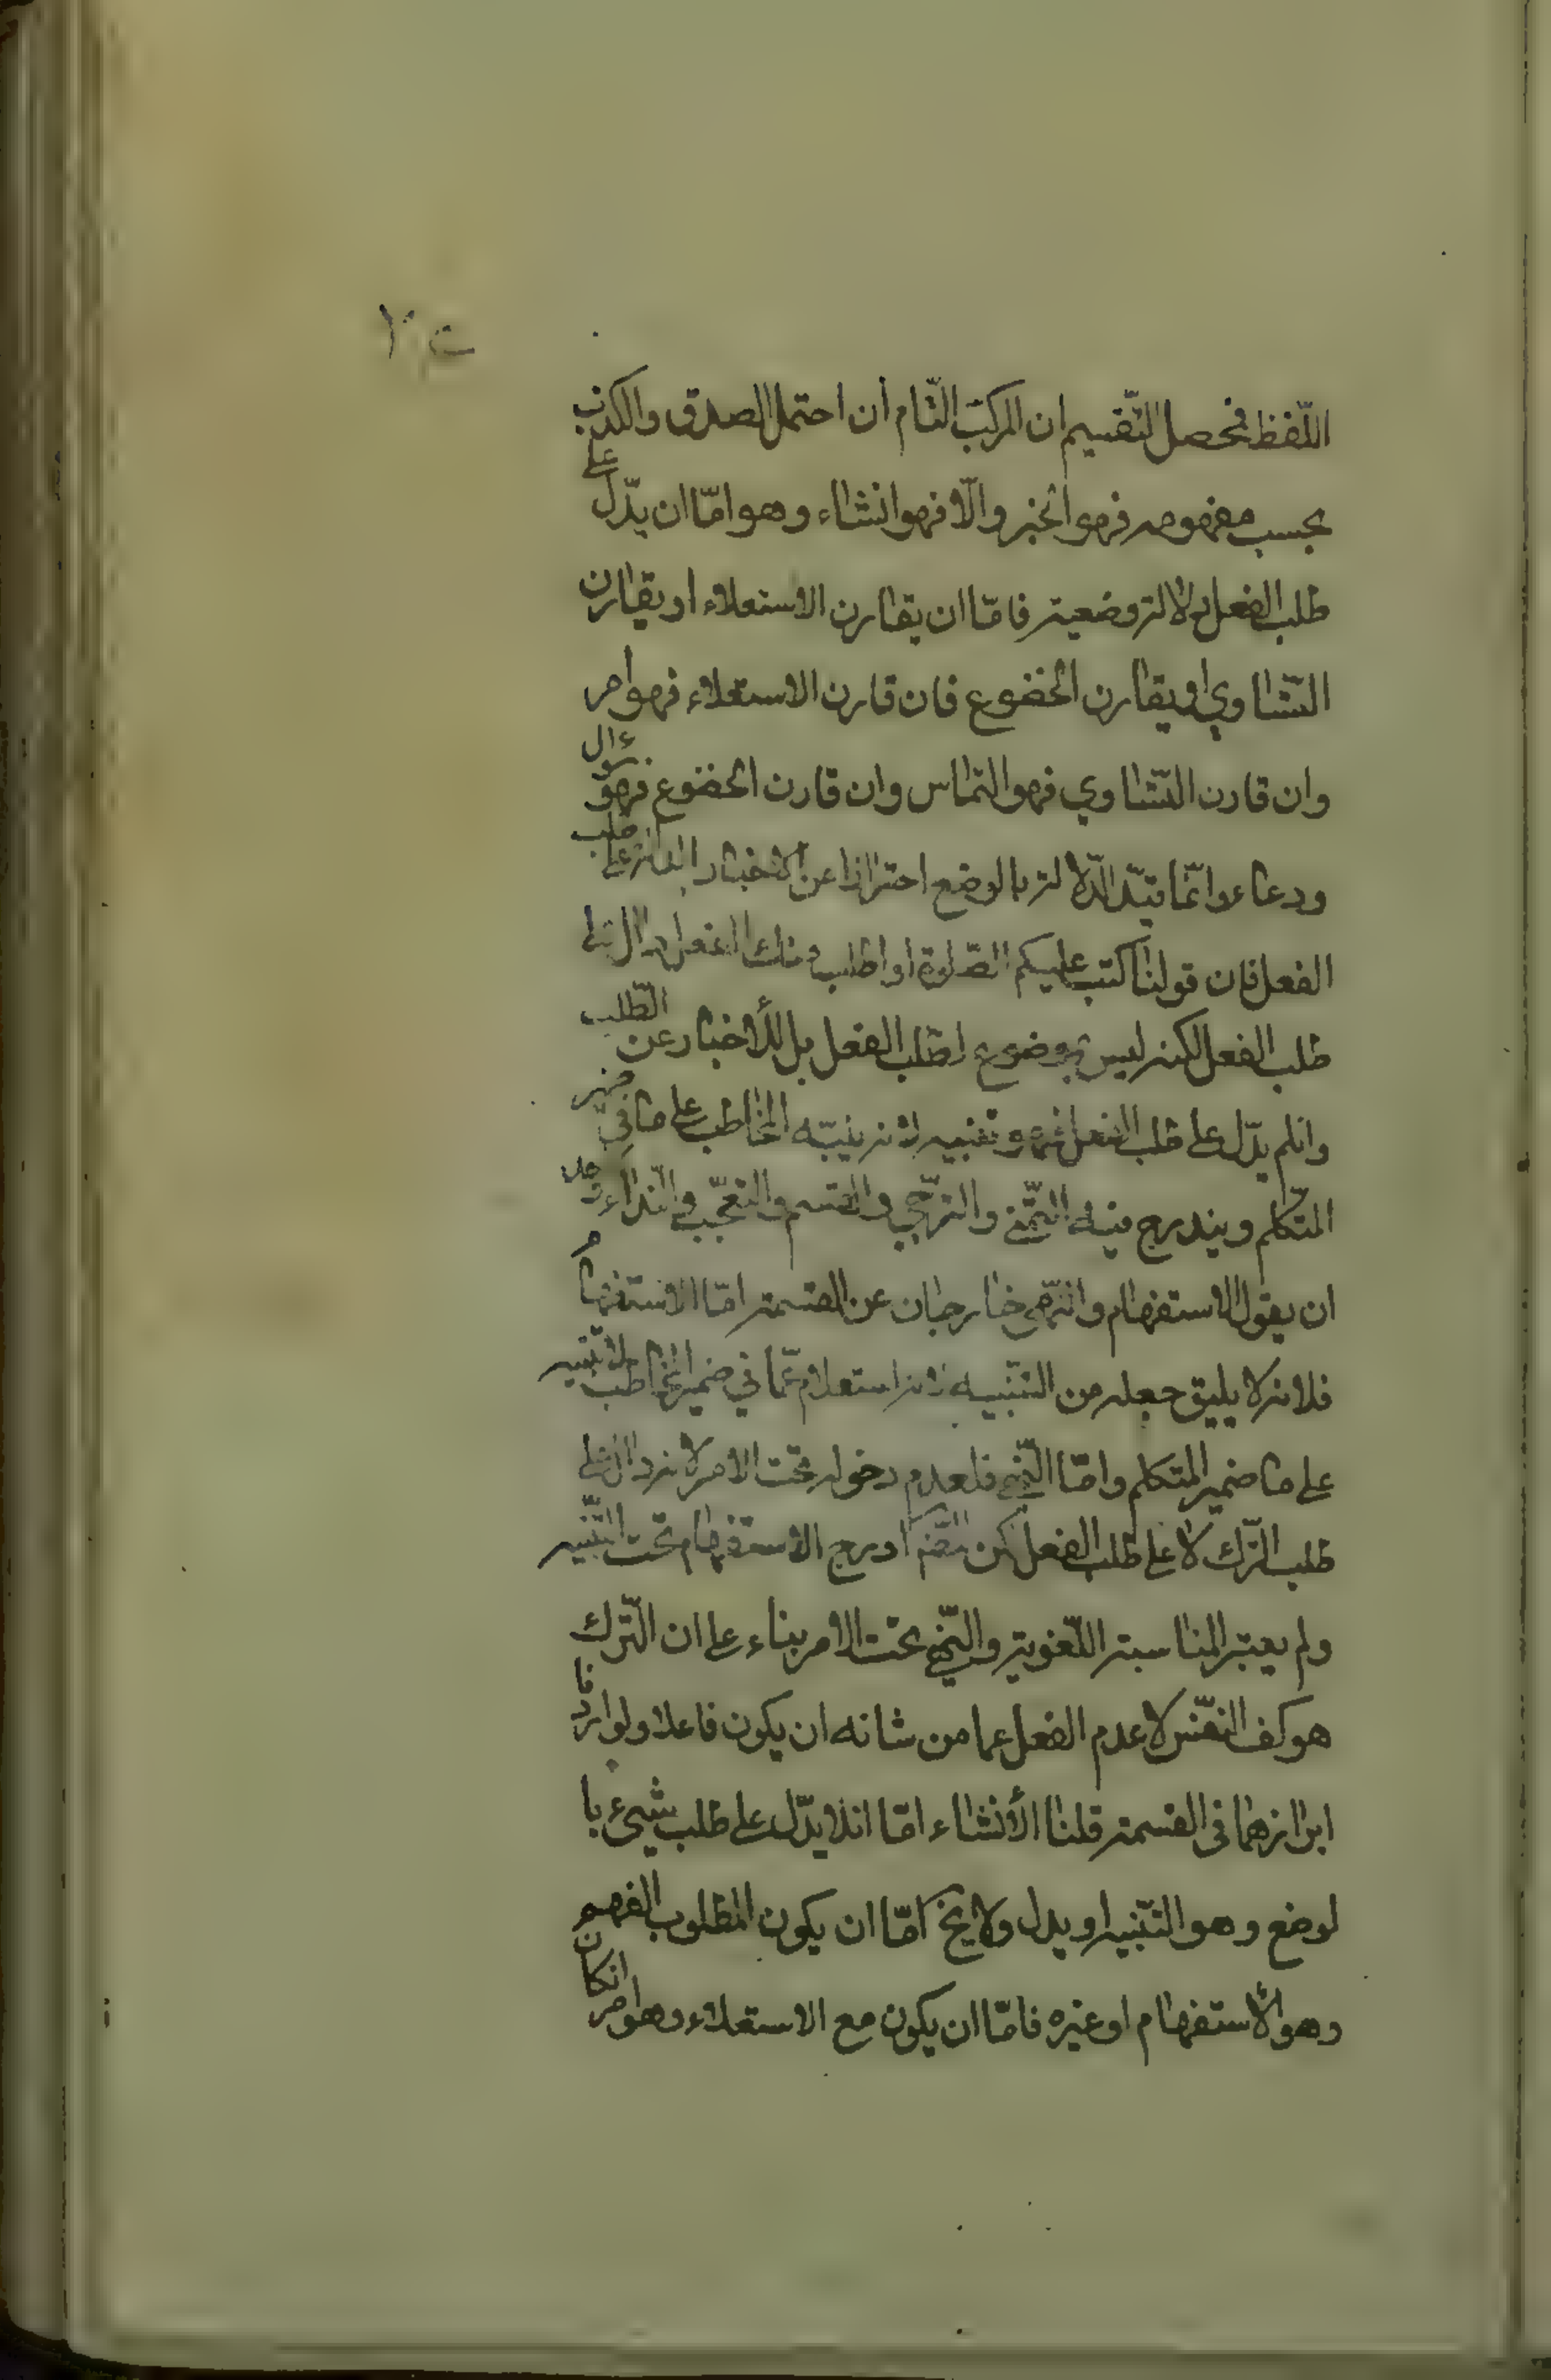 اللّفظ فمحصل التّقسيم ان المركب التّام ان احتمل الصدق والكذب
بحسب مفهومه فهو الخبر والّا فهو انشاء وهو امّا ان يدّل على
طلب الفعل دلالة وضعية فامّا ان يقارن الاستعلاء او يقارن
التّساوي او يقارن الخضوع فان قارن الاستعلاء فهو امر
وان قارن التّساوي فهو التماس وان قارن الخضوع فهو سؤال
ودعاء وانّما قيّد الدّلالة بالوضع احترازا عن الاخبار الدالة على طلب
الفعل فان قولنا كتب عليكم الصّلوة او اطلب منك الفعل دال على
طلب الفعل لكنه ليس بموضوع لطلب الفعل بل للأخبار عن الطّلب
وانلم يدّل على طلب الفعل فهو تنبيه لانه ينبّه المخاطب على ما في ضمير
المتكّلم ويندرج فيه التّمني والترّجي والقسم والتعجّب والنّداء ولقائل
ان يقول الاستفهام والنّهي خارجان عن القسمة امّا الاستفهام
فلانه لا يليق جعله من التّنبيه لانه استعلام عمّا في ضمير المخاطب لا تنبيه
على ما ضمير المتكلم وامّا النّهي فلعدم دخوله تحت الامر لانه دال على
طلب التّرك لا على طلب الفعل لكن المصّنف ادرج الاستفهام تحت التّنبيه
ولم يعتبر المناسبة اللّغوية والنّهي تحت الامر بناء على ان التّرك
هو كف النفّس لا عدم الفعل عما من شانه ان يكون فاعلا ولو اردنا
ايرازهما في القسمة قلنا الأنشاء امّا انلا يدّل على طلب شيىء با
لوضع وهو التّنبيه او يدل ولا يخ امّا ان يكون المطلوب الفهم
وهو الأستفهام او غيره فامّا ان يكون مع الاستعلاء وهو امر انكان